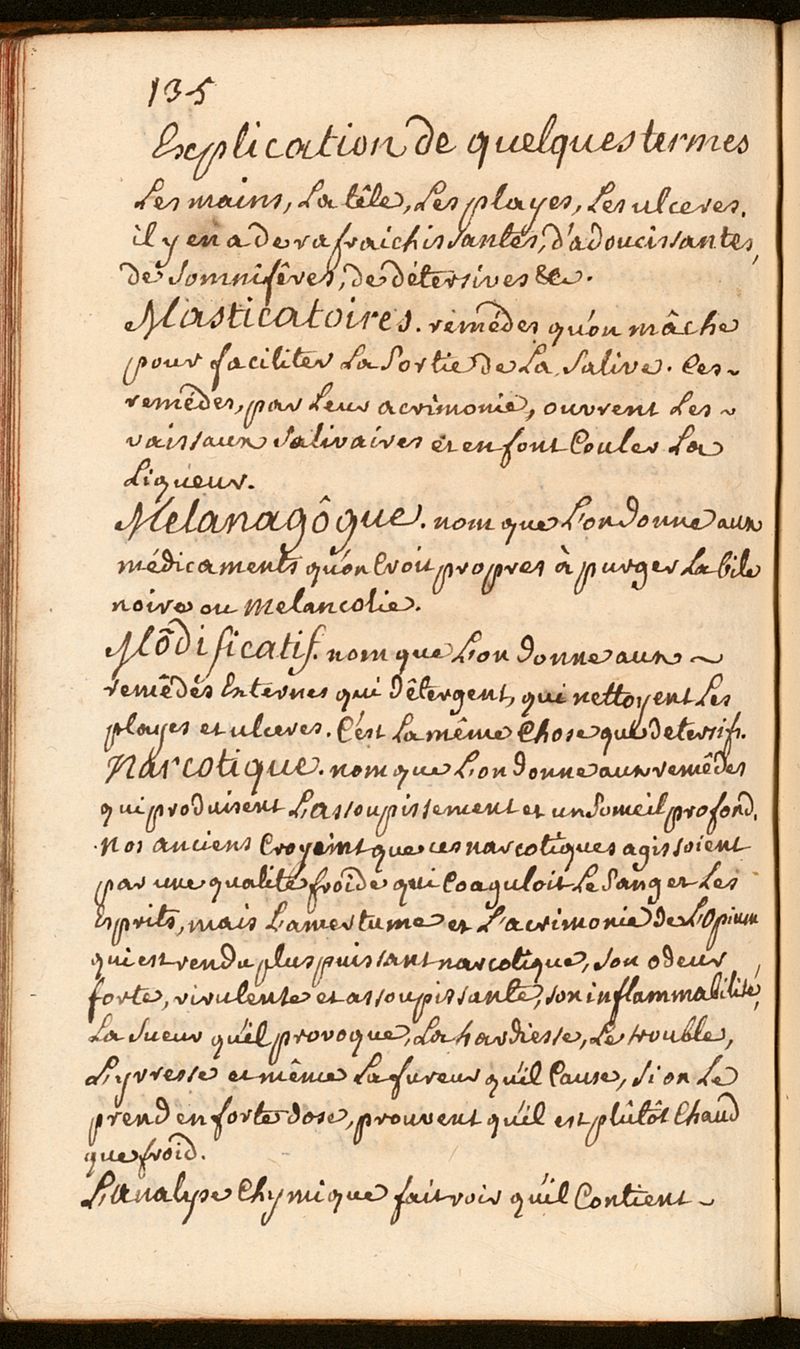 135
Explication de quelques termes
Les mains, La tête, Les playes, Les ulceres.
il y en a de rafraichissantes, d'adoucissantes,
de Somnifêres, de détersives &c.
Masticatoires. remêdes qu'on mâche
pour faciliter La Sortie de La Salive. Ces ~
remêdes, par Leur acrimonie, ouvrent Les ~
vaissaux Salivaires et en font Couler La
Liqueur.
Melanagôgue. nom que L'on donne aux
médicaments qu'on Croit propres à purger La bile
noire ou Melancolie.
Môdificatif. nom que L'on donne aux ~
remêdes Externes qui dêtergent, qui nettoyent Les
playes et ulceres. C'est La même Chose que detersifs.
Narcotique. nom que L'on donne aux remêdes
qui produisent L'assoupissement et un Someil profond.
Nos anciens Croyeint que ces narcotiques agissoient
par une qualité froide qui Coaguloit Le Sang et Les
Esprits, mais L'amertume et L'acrimonie de L'Opium
qui est rendu plus puissant narcotique, Son odeur
forte, virulente et assoupissante, son inflammabilité,
La Sueur qu'il provoque, La hardiesse, Le trouble,
L'yvresse et même La fureur qu'il Cause, Si on Le
prend en forte dose, prouvent qu'il est plûtôt Chaud
que froid.
L'analyse Chymique fait voir qu'il Contient ~